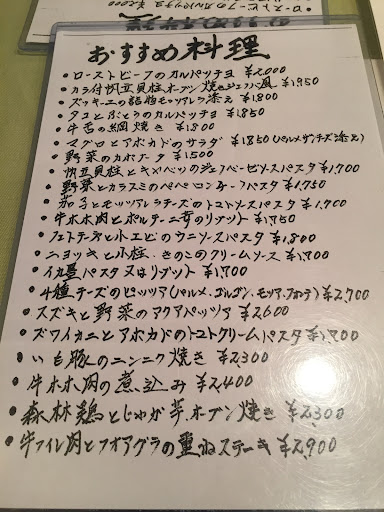 おすすめ料理
・ローストビーフのカルパッチョ ¥2,000
・カラ付帆立貝柱オーブン焼きジェノバ風 ¥1,950
・ズッキーニの詰物モッツァレラ添え ¥1,800
・タコとぶどうのカルパッチョ ¥1,850
・牛舌の網焼き ¥1,800
・マグロとアボカドのサラダ ¥1,850 (パルメザンチーズ添え)
・野菜のカポナータ ¥1,500
・帆立貝柱とキャベツのジェノベーゼソースパスタ ¥1,700
・野菜とカラスミのペペロンチーノパスタ ¥1,750
・茄子とモッツァレラチーズのトマトソースパスタ ¥1,700
・牛ホホ肉とポルチーニ茸のリゾット ¥1,750
・フェトチーネと小エビのウニソースパスタ ¥1,800
・ニョッキと小柱、きのこのクリームソース ¥1,700
・イカ墨パスタ又はリゾット ¥1,700
・4種チーズのピッツァ (パルメ、ゴルゴン、モツァ、フォンテ) ¥2,700
・スズキと野菜のアクアパッツァ ¥2,600
・ズワイカニとアボカドのトマトクリームパスタ ¥1,700
・いも豚のニンニク焼き ¥2,300
・牛ホホ肉の煮込み ¥2,400
・森林鶏とじゃが芋オーブン焼き ¥2,300
・牛フィレ肉とフォアグラの重ねステーキ ¥2,900